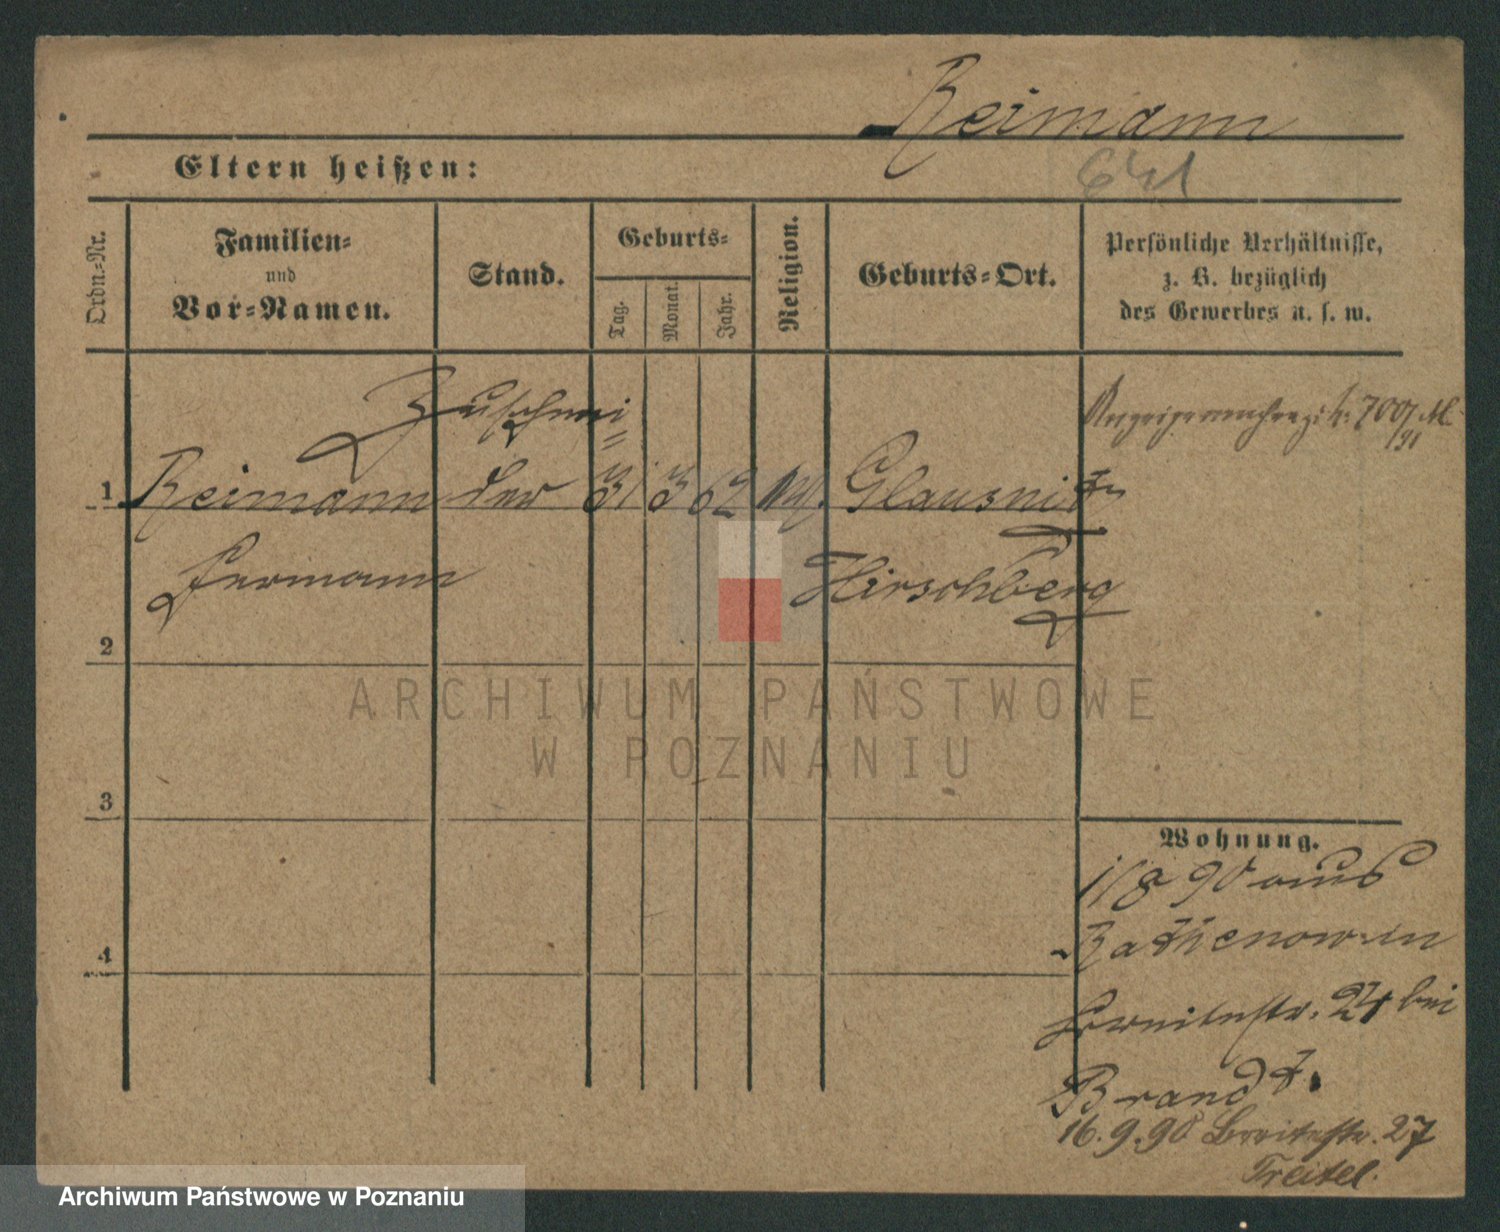 Reimann
641
Eltern heißen:
Ordn.-Nr.
Familien-
und
Vor-Namen.
Stand.
Geburts-
Tag.
Monat.
Jahr.
Religion.
Geburts-Ort.
Persönliche Verhältnisse,
z. B. bezüglich
des Gewerbes u. s. w.
Zuschnei=
1 Reimann der 31 3 62 Glausnitz
Hermann Hirschberg
2
3
4
Wohnung.
1/8 90 aus
Rathenow in
Breitestr. 24 bei
Brandt.
16.9.90 Breitestr. 27
Treitel.
ARCHIWUM PAŃSTWOWE
W POZNANIU
Archiwum Państwowe w Poznaniu